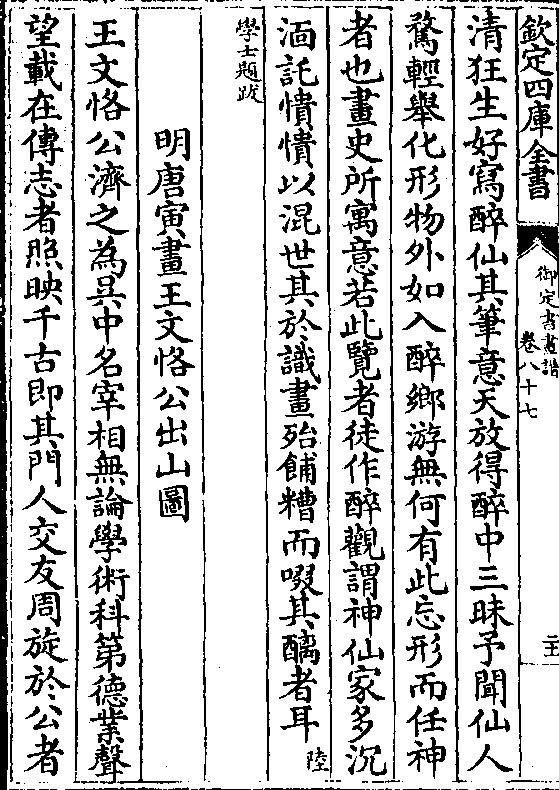 欽定四庫全書
御定書畫譜
卷八十七
二十
清狂生好寫醉仙其筆意天放得醉中三昧予聞仙人
騖輕舉化形物外如入醉鄉游無何有此忘形而任神
者也畫史所寓意若此覽者徒作醉觀謂神仙家多沉
湎託憒憒以混世其於識畫殆餔糟而啜其醨者耳陸
學士題跋
明唐寅畫王文恪公出山圖
王文恪公濟之為吳中名宰相無論學術科第德業聲
望載在傳志者照映千古即其門人交友周旋於公者